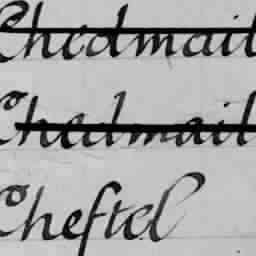 Chedmail
Chedmail
Cheftel